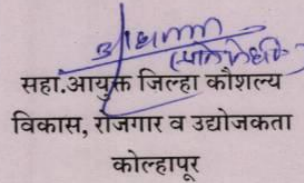 सहा.आयुक्त जिल्हा कौशल्य
विकास, रोजगार व उद्योजकता
कोल्हापूर